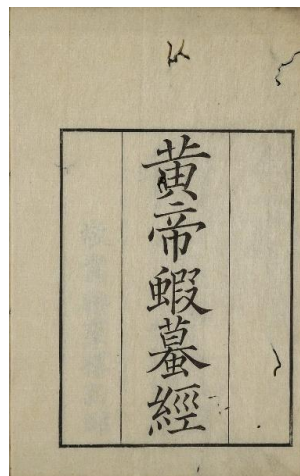 黄帝蝦蟇經